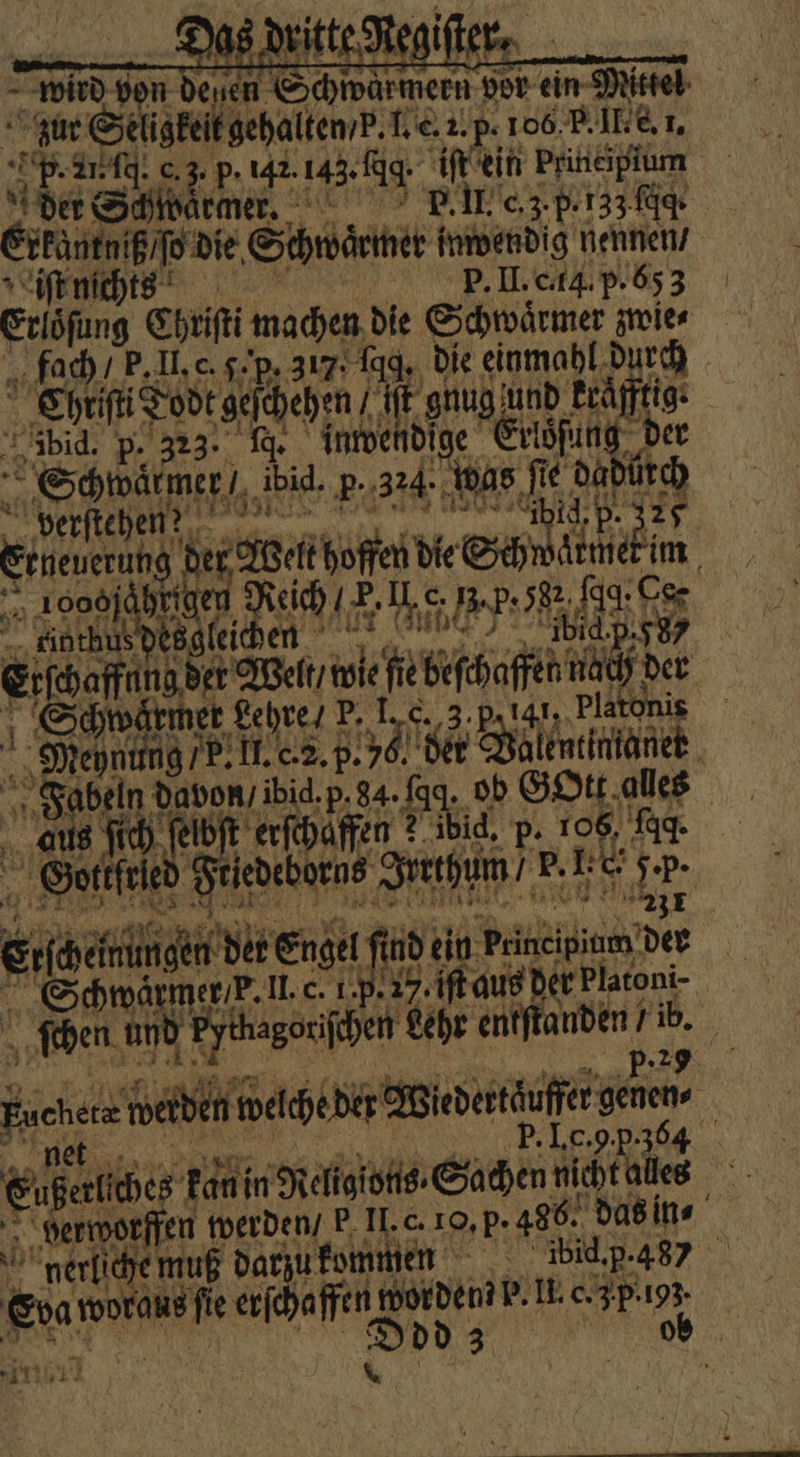 Das dritte Regiſter.
wird von denen Schwaͤrmern vor ein Mittel
zur Seligkeit gehalten/P. I. c. 2. p. 106. P. II. c. 1.
p. 21. ſq. c. 3. p. 142. 143. ſqq. iſt ein Principium
der Schwaͤrmer. P. II. c. 3. p. 133 ſqq.
Erkaͤntniß/ſo die Schwaͤrmer inwendig nennen/
iſt nichts P. II. c. 14. p. 653
Erloͤſung Chriſti machen die Schwaͤrmer zwie⸗
fach / P. II. c. 5. p. 317. ſqq. die einmahl durch
Chriſti Todt geſchehen / iſt gnug und kraͤfftig.
ibid. p. 323. ſq. inwendige Erloͤſung der
Schwaͤrmer / ibid. p. 324. was ſie dadurch
verſtehen? ibid. p. 325
Erneuerung der Welt hoffen die Schwaͤrmer im
1000jaͤhrigen Reich / P. II. c. 13. p. 582. ſqq. Ce⸗
rinthus desgleichen ibid. p. 587
Erſchaffung der Welt/ wie ſie beſchaffen nach der
Schwaͤrmer Lehre / P. I. c. 3. p. 141. Platonis
Meynung / P. II. c. 2. p. 76. der Valentinianer
Fabeln davon/ ibid. p. 84. ſqq. ob GOtt alles
aus ſich ſelbſt erſchaffen? ibid. p. 106. ſqq.
Gottfried Friedeborns Irrthum / P. I. c. 5. p.
231
Erſcheinungen der Engel ſind ein Principium der
Schwaͤrmer/P. II. c. 1. p. 27. iſt aus der Platoni-
ſchen und Pythagoriſchen Lehr entſtanden / ib.
p. 29
Euchetæ werden welche der Wiedertaͤuffer genen⸗
net P. I. c. 9. p. 364
Eußerliches kan in Religions⸗Sachen nicht alles
verworffen werden/ P. II. c. 10. p. 486. das in⸗
nerliche muß darzu kommen ibid. p. 487
Eva woraus ſie erſchaffen worden? P. II. c. 3. p. 193.
Ddd 3 ob